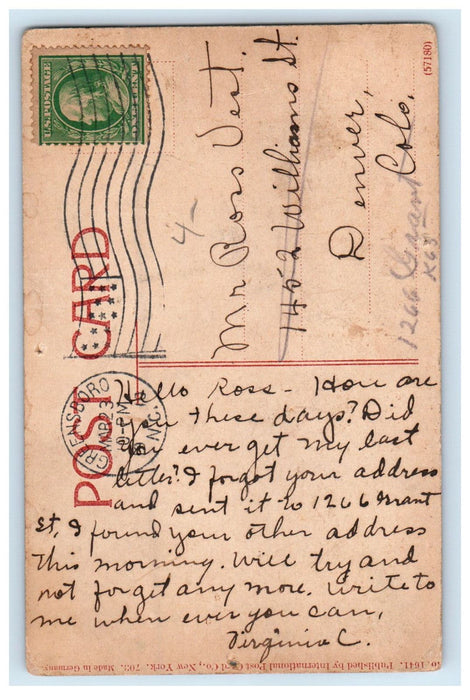 (57180)
U.S. POSTAGE
POST CARD
GREENSBORO
MAR 23
-PM
N.C.
4-
Mr Ross Vest.
1452 Williams St.
Denver,
Colo.
1266 Grant
Hello Ross - How are
you these days? Did
you ever get my last
letter? I forgot your address
and sent it to 1266 Grant
St, I found your other address
this morning. Will try and
not forget any more. Write to
me when ever you can,
Virginia C.
1641. Published by International Post Card Co., New York. 703. Made in Germany